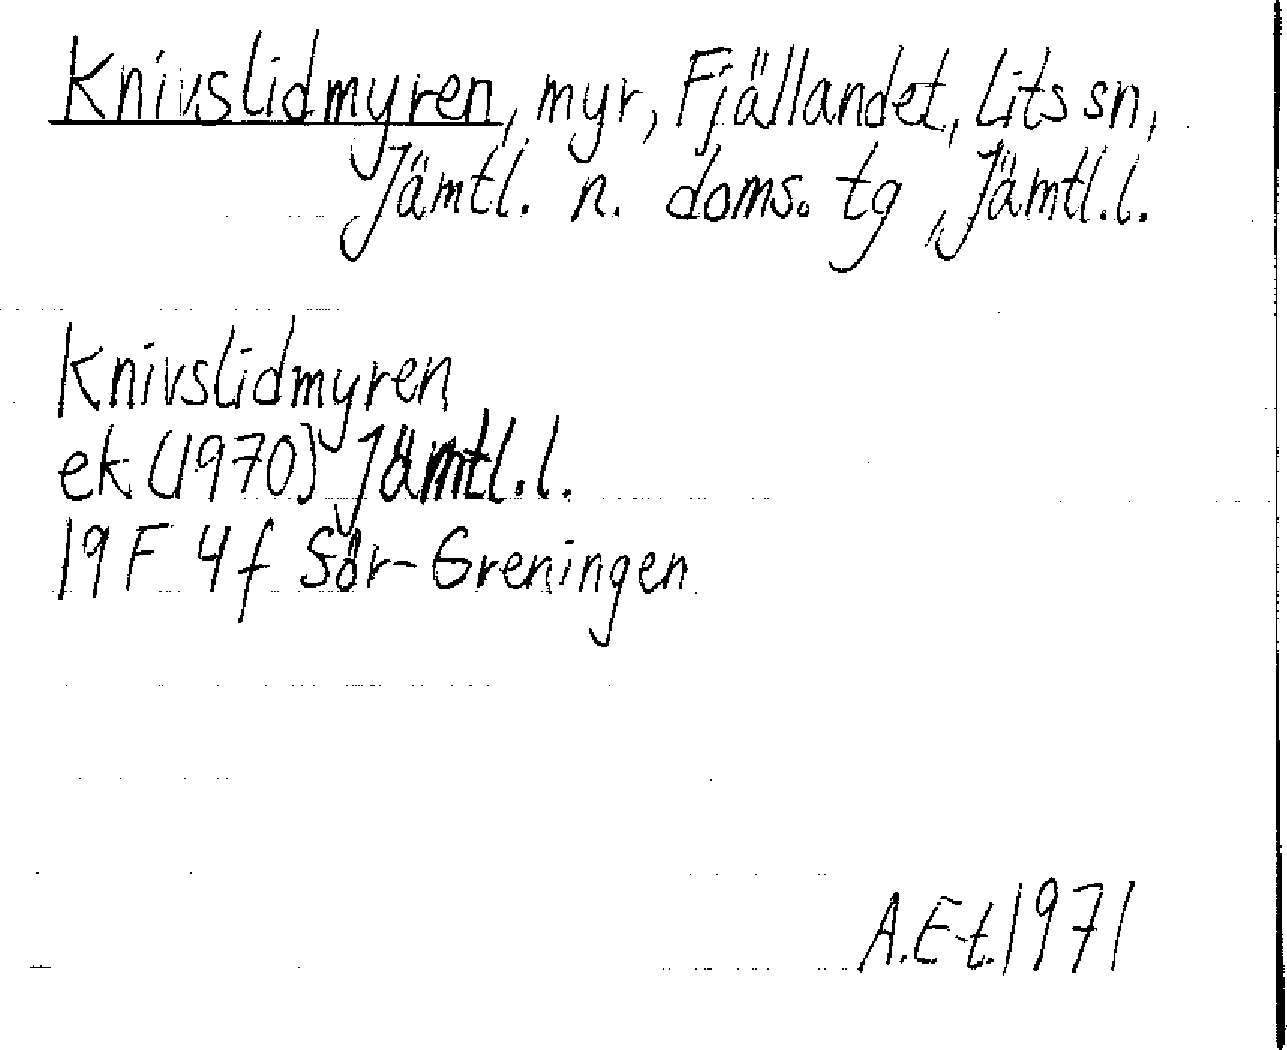 Knivslidmyren, myr, Fjällandet, Lits sn,
Jämtl. n. doms. tg, Jämtl.l.
Knivslidmyren
ek (1970) Jämtl.l.
19 F 4 f Sör-Greningen
A.E-t. 1971